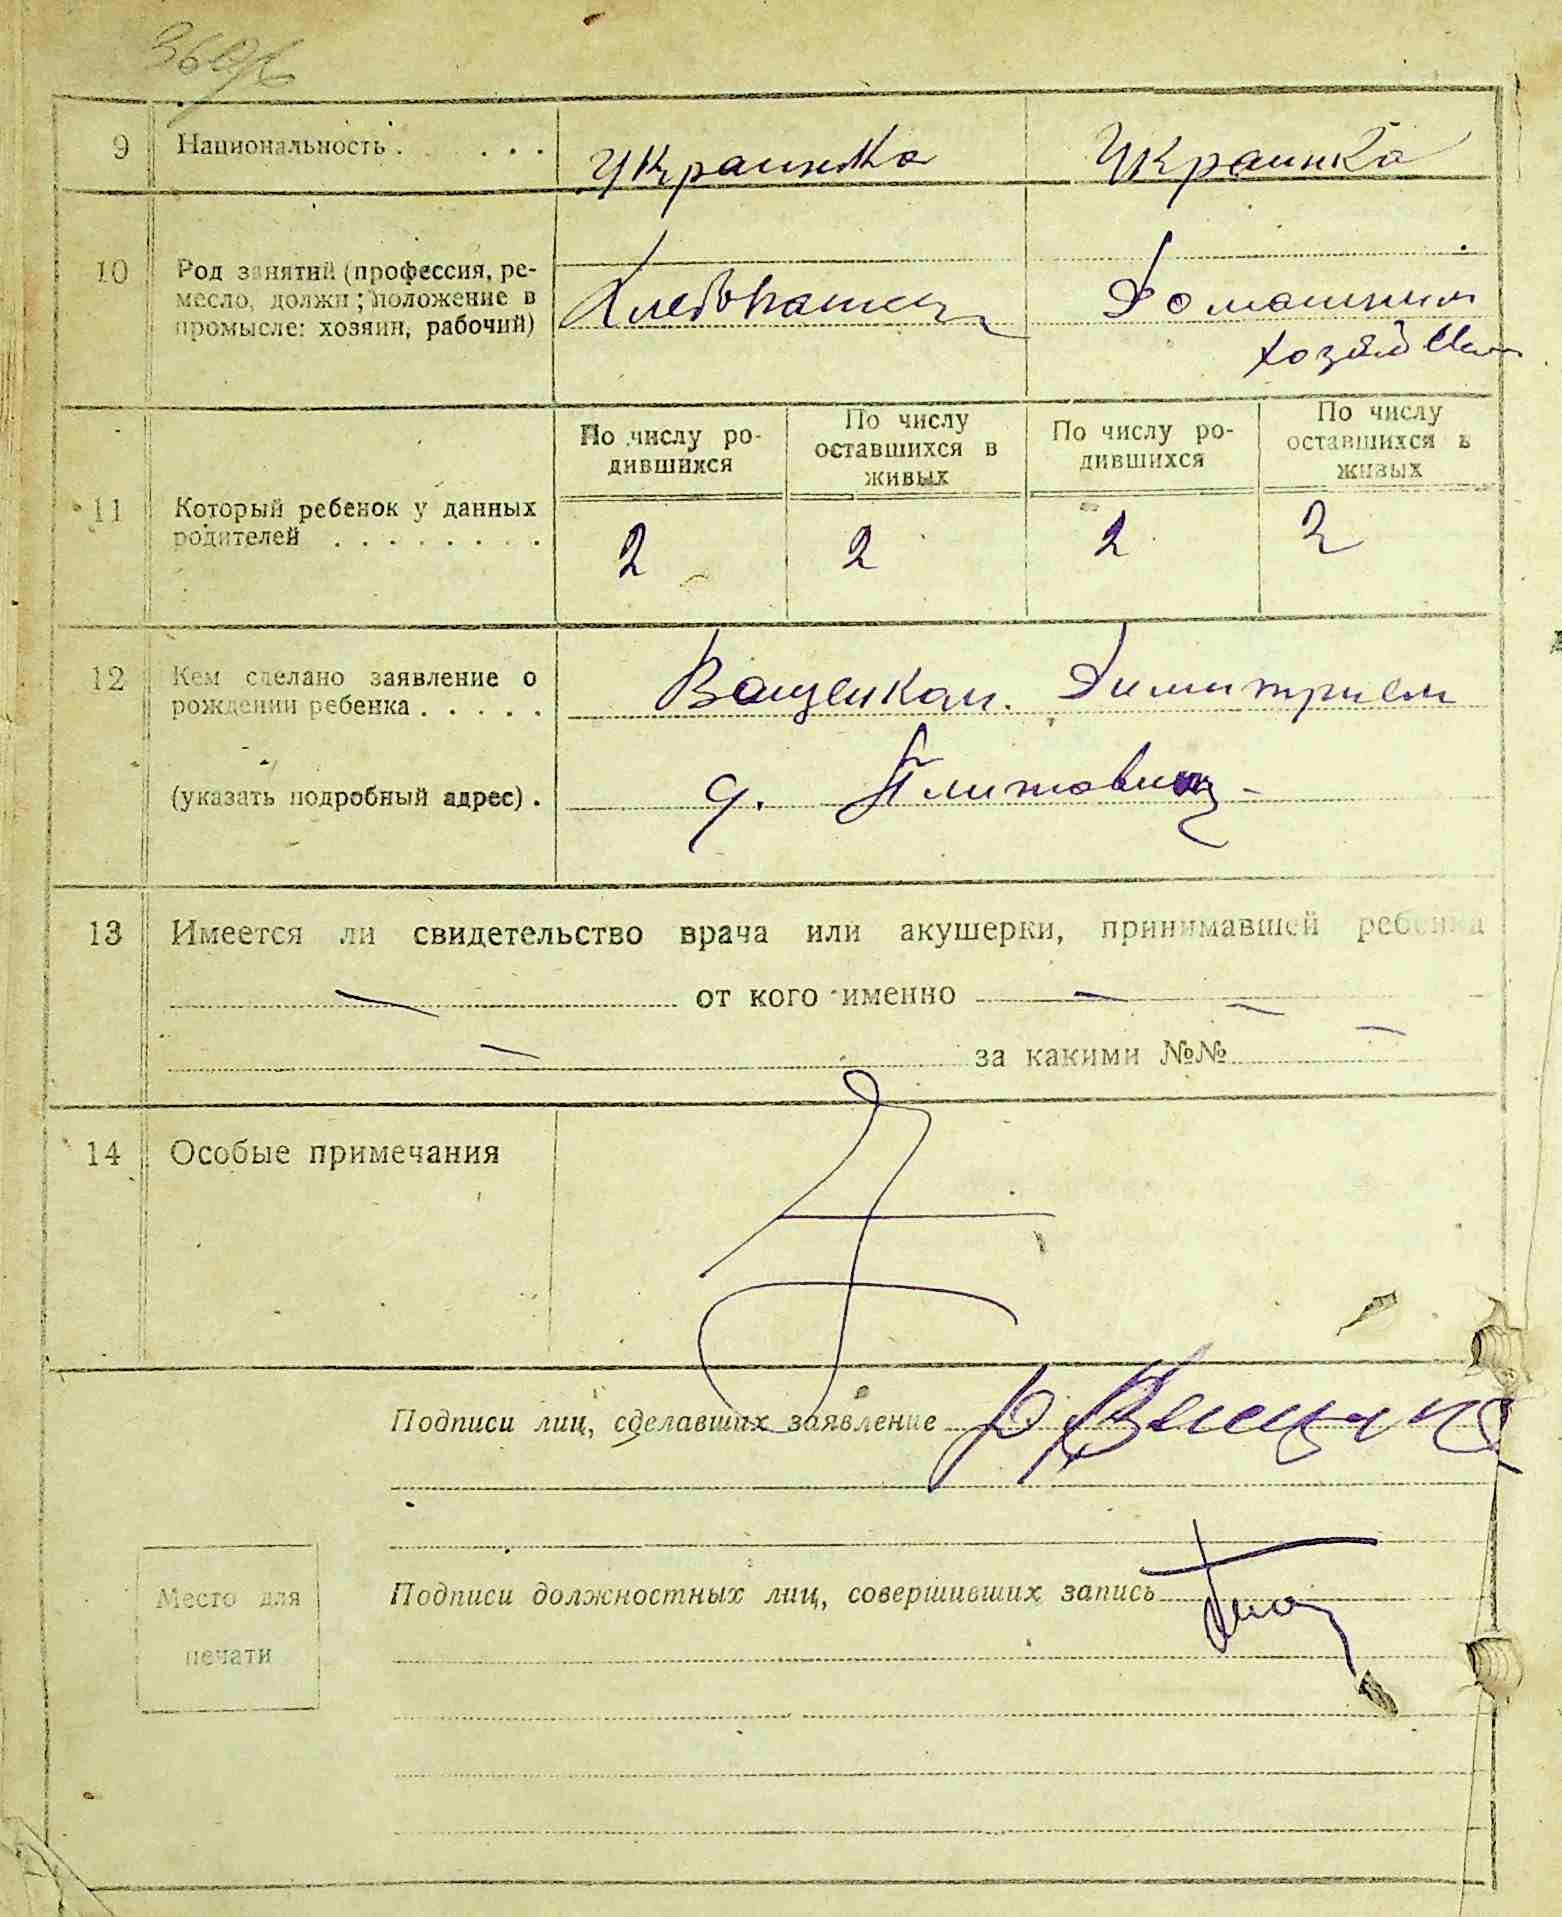 9 Национальность . . . . . Украинка Украинка
10 Род занятий (профессия, ре-
месло, должн; положение в
промысле: хозяин, рабочий)
Хлебопашец
Домашним
хозяйством
По числу ро-
дившихся
По числу
оставшихся в
живых
По числу ро-
дившихся
По числу
оставшихся в
живых
11 Который ребенок у данных
родителей . . . . . . . .
2 2 2 2
12 Кем сделано заявление о
рождении ребенка . . . . .
Ващенкам. Димитрием
(указать подробный адрес) .
д.
13 Имеется ли свидетельство врача или акушерки, принимавшей ребенка
— от кого именно — —
— за какими №№ —
14 Особые примечания
Подписи лиц, сделавших заявление
Подписи должностных лиц, совершивших запись
Место для
печати